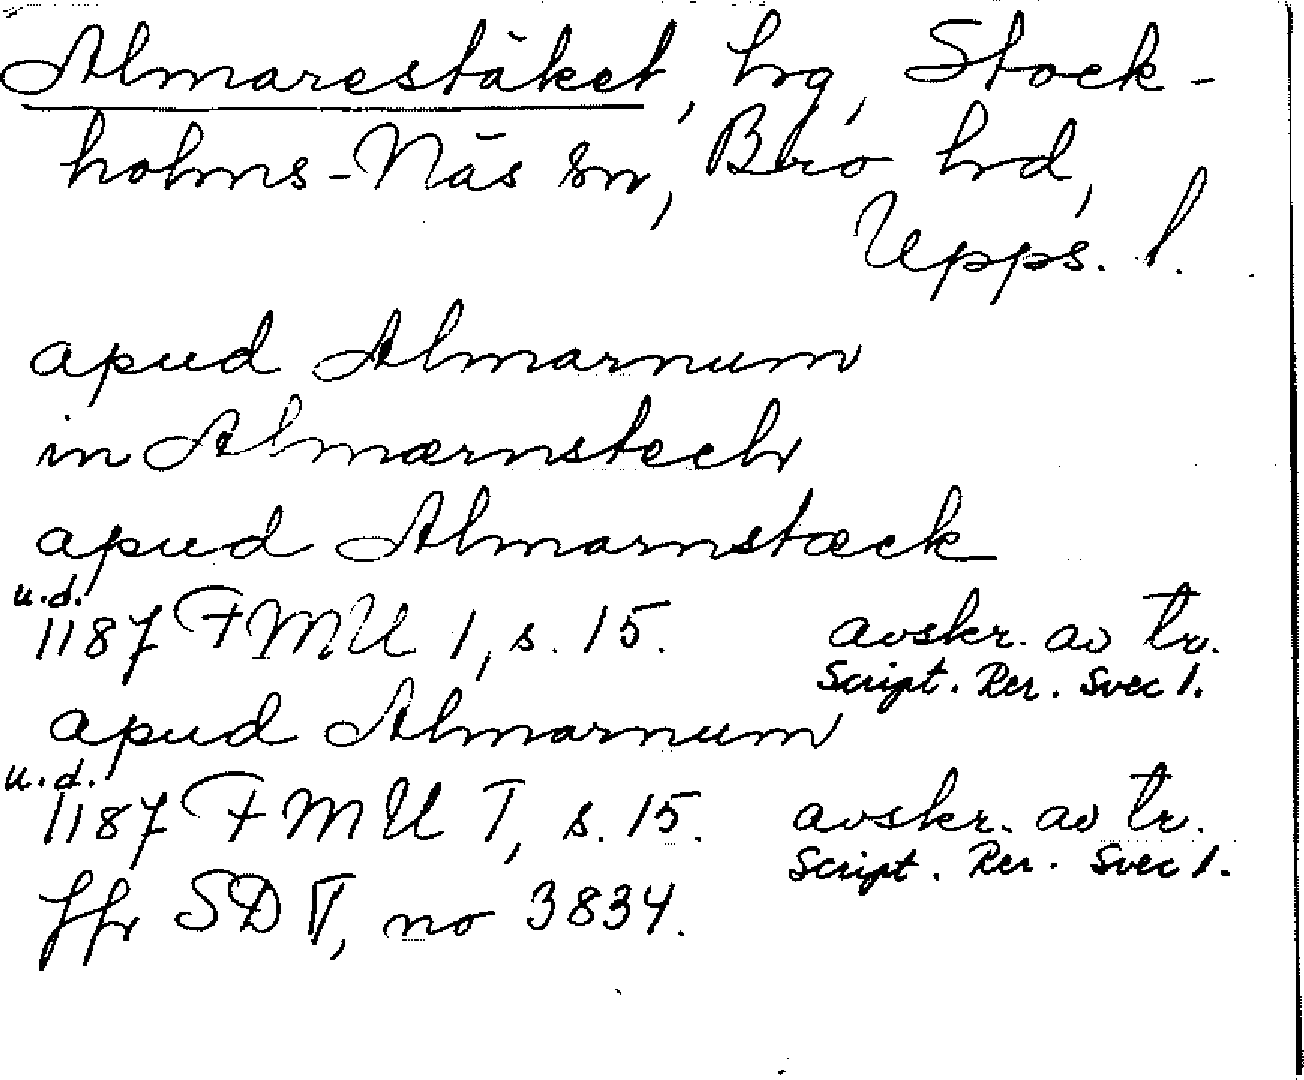 Almarestäket, hrg, Stock-
holms-Näs sn, Bro hrd,
Upps. l.
apud Almarnum
in Almærnstech
apud Almarnstæck
u.d.
1187 FMU 1, s. 15. avskr. av tr.
Script. Rer. Svec 1.
apud Almarnum
u.d.
1187 FMU I, s. 15. avskr. av tr.
Script. Rer. Svec 1.
jfr SD V, no 3834.